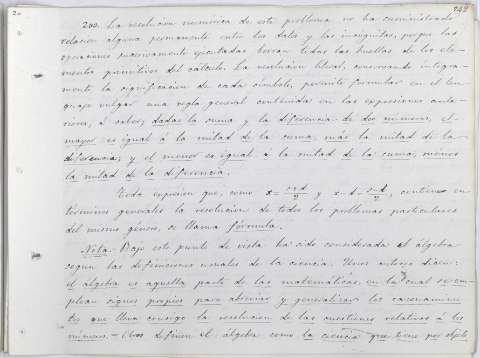 20
249
200. La resolucion numérica de este problema no ha suministrado
relacion alguna permanente entre los datos y las incógnitas, porque las
operaciones sucesivamente ejecutadas borran todas las huellas de los ele-
mentos primitivos del cálculo. La resolucion literal, conservando íntegra-
mente la significacion de cada símbolo, permite formular en el len-
guaje vulgar una regla general contenida en las expresiones ante-
riores, á saber; dadas la suma y la diferencia de dos números, el
mayor es igual á la mitad de la suma, más la mitad de la
diferencia; y el menor es igual á la mitad de la suma, ménos
la mitad de la diferencia.
Toda expresion que, como x = s+d/2 y x-d = s-d/2, contiene en
términos generales la resolucion de todos los problemas particulares
del mismo género, se llama fórmula.
Nota. Bajo este punto de vista ha sido considerada el álgebra
segun las definiciones usuales de la ciencia. Unos autores dicen:
el álgebra es aquella parte de las matemáticas, en la cual se em-
plean signos propios para abreviar y generalizar los razonamien-
tos que lleva consigo la resolucion de las cuestiones relativas á los
números. - Otros definen el álgebra como la ciencia que tiene por objeto